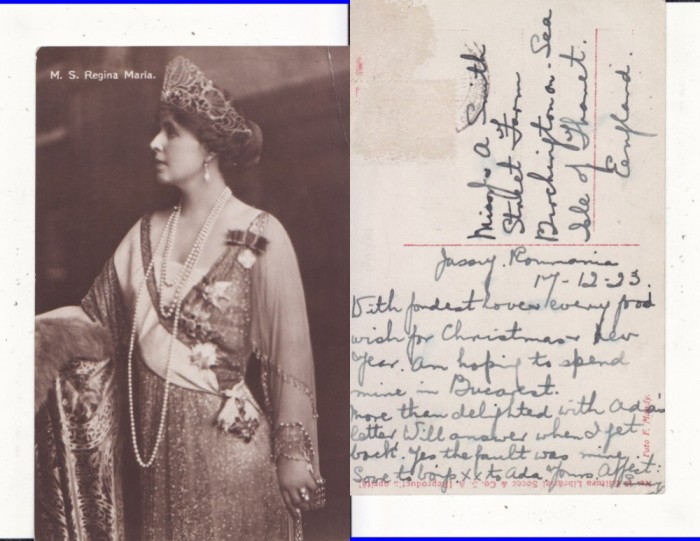 M. S. Regina Maria.
Miss A Smith
Street Farm
Birchington on-Sea
Isle of Thanet.
England.
Jassy. Roumania
17-12-23.
With fondest love & every good
wish for Christmas & New
Year. Am hoping to spend
mine in Bucarest.
More than delighted with Ada's
letter Will answer when I get
back. Yes the fault was mine.
Love to boys xx to Ada Yours Affect:
Foto F. Mandy.
Editura Librăriei Socec & Co. S. A. (Reproducerea oprită)